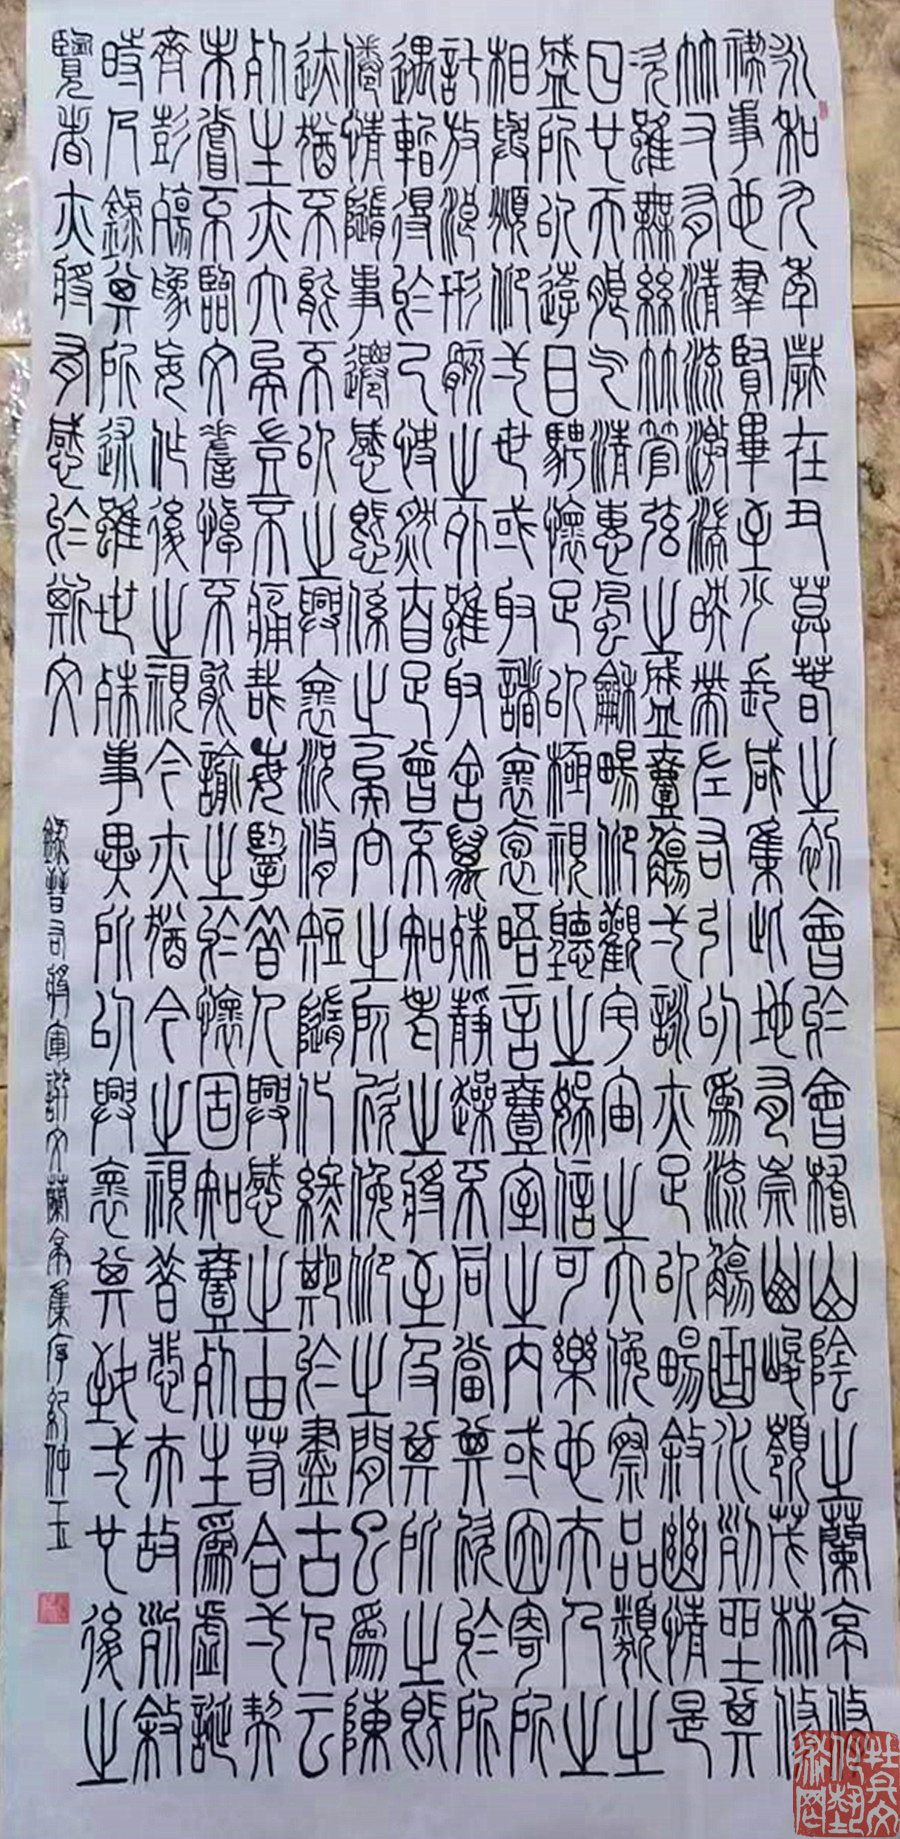 永和九年歲在丑莫春之初會於會稽山陰之蘭亭修
禊事也群賢畢至少長咸集此地有崇山峻嶺茂林修
竹又有清流激湍映帶左右引以為流觴曲水列坐其
次雖無絲竹管弦之盛壹觴弌詠亦足以暢敘幽情是
日也天朗气清惠風龢暢仰觀宇宙之大俛察品類之
盛所以遊目騁懷足以極視聽之娛信可樂也夫人之
相與頫仰弌世或取諸懷抱晤言壹室之內或因寄所
託放浪形骸之外雖取舍萬殊靜躁不同當其欣於所
遇暫得於己快然自足曾不知老之將至及其所之既
倦情隨事遷感慨係之矣向之所欣俛仰之閒已為陳
迹猶不能不以之興懷況修短隨化終期於盡古人云
死生亦大矣豈不痛哉每攬昔人興感之由若合弌契
未嘗不臨文嗟悼不能諭之於懷固知壹死生為虛誕
齊彭殤為妄作後之視今亦猶今之視昔悲夫故列敘
時人錄其所述雖世殊事異所以興懷其致弌也後之
覽者亦將有感於斯文
錄晉右將軍文蘭亭集序紀仲玉